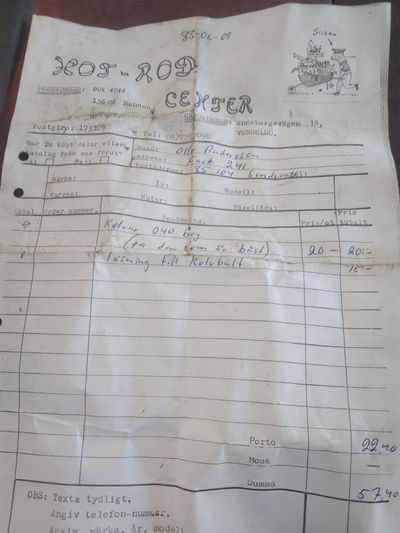 83-06-09
Sidan
HOT-ROD
CENTER
POSTADRESS: BOX 4044
136 04 Handen
GATUADRESS: Anneborgsvägen 18,
VENDELSÖ.
Postgiro:
Tel:
Har Du köpt delar eller
katalog från oss förut?
Nej
Namn: Olle Andersson
Adress: Fack 241
Postadress: 85 104 Sundsvall
Märke: År: Modell:
Kaross: Motor: Växellåda:
Antal Order nummer. Benämning. Pris/st Pris totalt
4 Kolvar 040 beg.
(ta dom som är bäst) 20:- 20:-
1 låsning till Kolvbult 15:-
Porto 22,40
Moms —
Summa 57,40
OBS: Texta tydligt.
Angiv telefon-nummer.
Angiv märke, år, modell